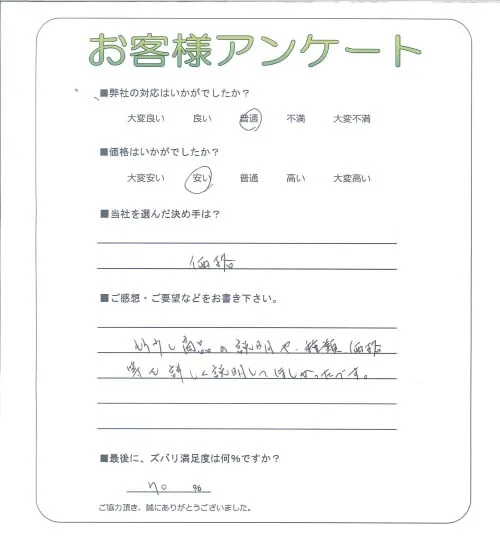 お客様アンケート
■弊社の対応はいかがでしたか？
大変良い 良い 普通 不満 大変不満
■価格はいかがでしたか？
大変安い 安い 普通 高い 大変高い
■当社を選んだ決め手は？
価格
■ご感想・ご要望などをお書き下さい。
もう少し商品の説明や、種類、価格
等も詳しく説明してほしかったです。
■最後に、ズバリ満足度は何％ですか？
70 ％
ご協力頂き、誠にありがとうございました。